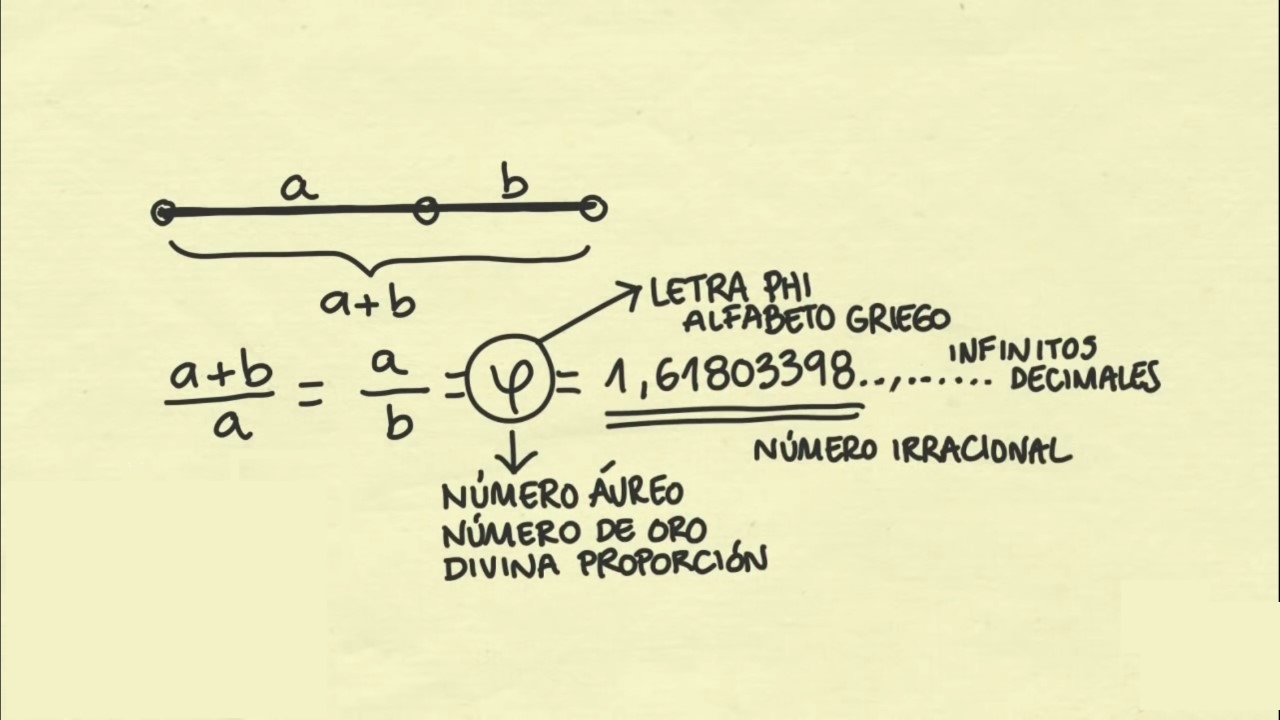 a b
a+b
LETRA PHI
ALFABETO GRIEGO
a+b/a = a/b = φ = 1,61803398..,....... INFINITOS
DECIMALES
NÚMERO IRRACIONAL
NÚMERO ÁUREO
NÚMERO DE ORO
DIVINA PROPORCIÓN